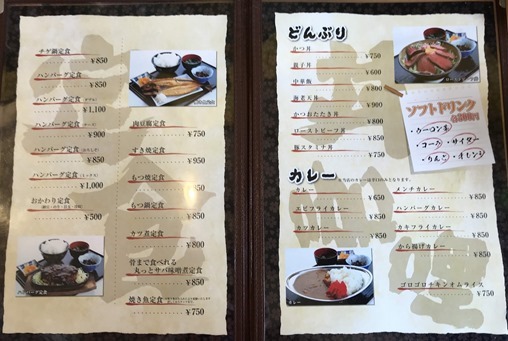 チゲ鍋定食
¥850
ハンバーグ定食
¥850
ハンバーグ定食
¥1,100
ハンバーグ定食
¥900
ハンバーグ定食
¥850
ハンバーグ定食
¥1,000
おかわり定食
¥500
肉豆腐定食
¥750
すき焼定食
¥950
もつ焼定食
¥750
もつ鍋定食
¥850
カツ煮定食
¥800
骨まで食べれる
丸っとサバ味噌煮定食
¥850
焼き魚定食
¥750
どんぶり
かつ丼
¥750
親子丼
¥600
中華飯
¥800
海老天丼
¥900
かつおたたき丼
¥800
ローストビーフ丼
豚スタミナ丼
ソフトドリンク
・ウーロン茶
・コーラ ・サイダー
・りんご ・オレンジ
カレー
カレー
¥650
エビフライカレー
¥850
カツカレー
¥850
メンチカレー
¥850
ハンバーグカレー
¥850
カキフライカレー
¥850
から揚げカレー
¥850
ゴロゴロチキンオムライス
¥750
カレー